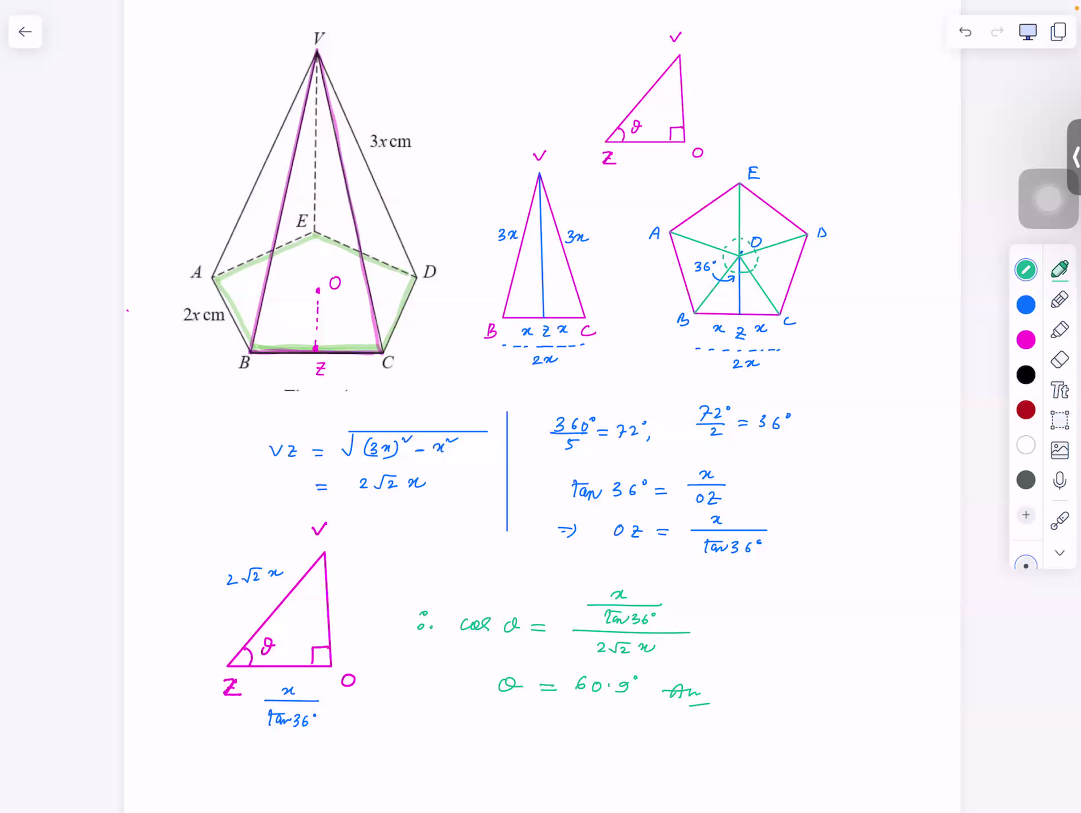 V
3x cm
E
A
D
O
2x cm
B
C
Z
V
θ
Z
O
V
3x
3x
B x Z x C
2x
E
A
D
O
36°
B x Z x C
2x
VZ = √(3x)² - x²
= 2√2 x
360°/5 = 72°, 72°/2 = 36°
tan 36° = x/OZ
⇒ OZ = x/tan 36°
V
2√2 x
θ
Z
O
x/tan 36°
∴ cos θ = (x/tan 36°)/(2√2 x)
θ = 60.9° Ans
Tt